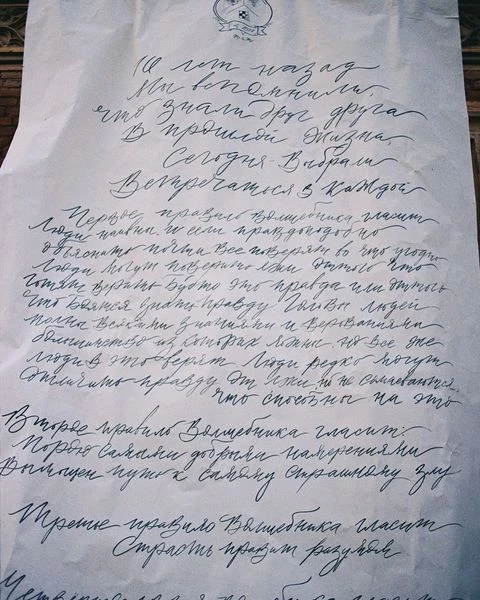 10 лет назад
Мы вспомнили,
что знали друг друга
В прошлой жизни.
Сегодня Выбрали
Встречаться в каждой
Первое правило Волшебника гласит
Люди наивны, и если правдоподобно
объяснить почти все поверят во что угодно
Люди могут поверить лжи оттого что
хотят верить будто это правда или оттого
что боятся знать правду Головы людей
полны всякими знаниями и верованиями
большинство из которых ложны. но все же
люди в это верят Люди редко могут
отличить правду от лжи но не сомневаются
что способны на это
Второе правило Волшебника гласит:
Порою самыми добрыми намерениями
Вымощен путь к самому страшному злу
Третье правило Волшебника гласит
Страсть правит разумом